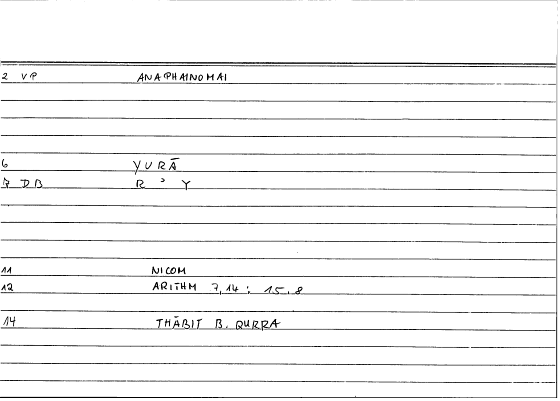 2 VP ANAPHAINOMAI
6 YURĀ
7 DB R ʾ Y
11 NICOM
12 ARITHM 7,14 : 15,8
14 THĀBIT B. QURRA